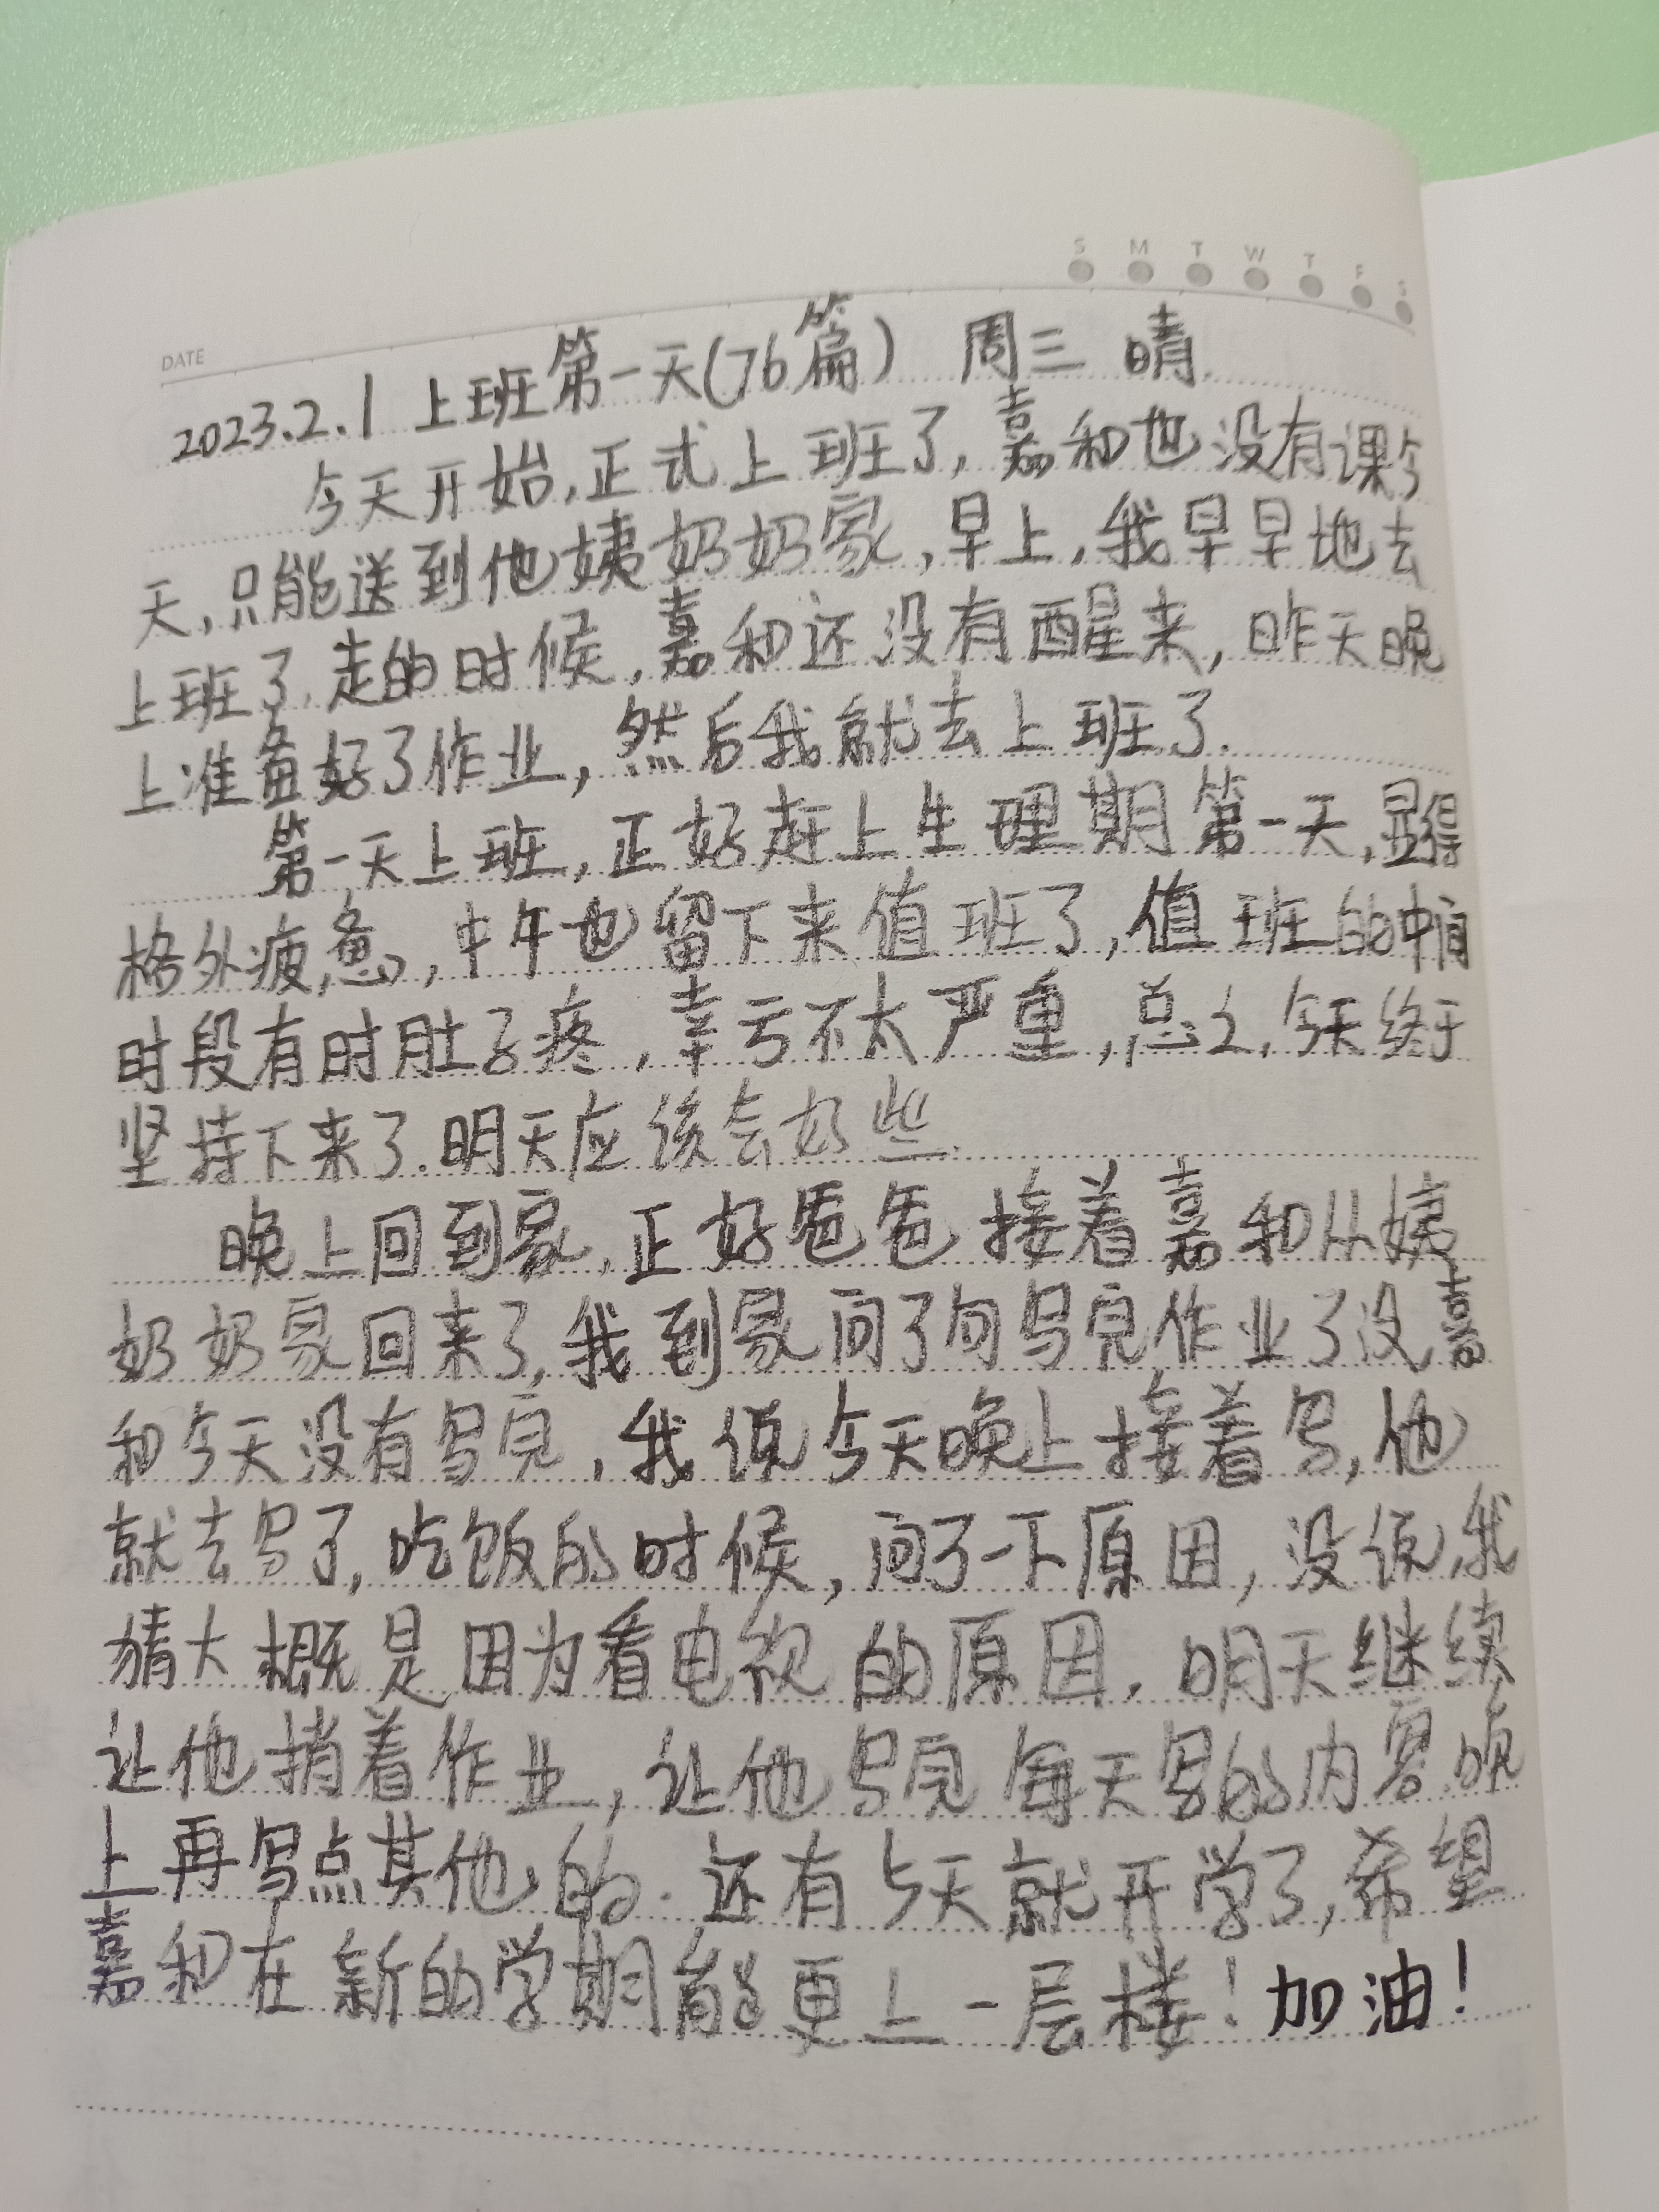 S M T W T F S
DATE
2023.2.1 上班第一天(76篇) 周三 晴
今天开始,正式上班了,嘉和也没有课今
天,只能送到他姨奶奶家,早上,我早早地去
上班了,走的时候,嘉和还没有醒来,昨天晚
上准备好了作业,然后我就去上班了.
第一天上班,正好赶上生理期第一天,显得
格外疲惫,中午也留下来值班了,值班的中间
时段有时肚子疼,幸亏不太严重,总之,今天终于
坚持下来了.明天应该会好些.
晚上回到家,正好爸爸接着嘉和从姨
奶奶家回来了,我到家问了句写完作业了没嘉
和今天没有写完,我说今天晚上接着写,他
就去写了,吃饭的时候,问了一下原因,没说,我
猜大概是因为看电视的原因,明天继续
让他捎着作业,让他写完每天写的内容,晚
上再写点其他的.还有5天就开学了,希望
嘉和在新的学期能更上一层楼!加油!